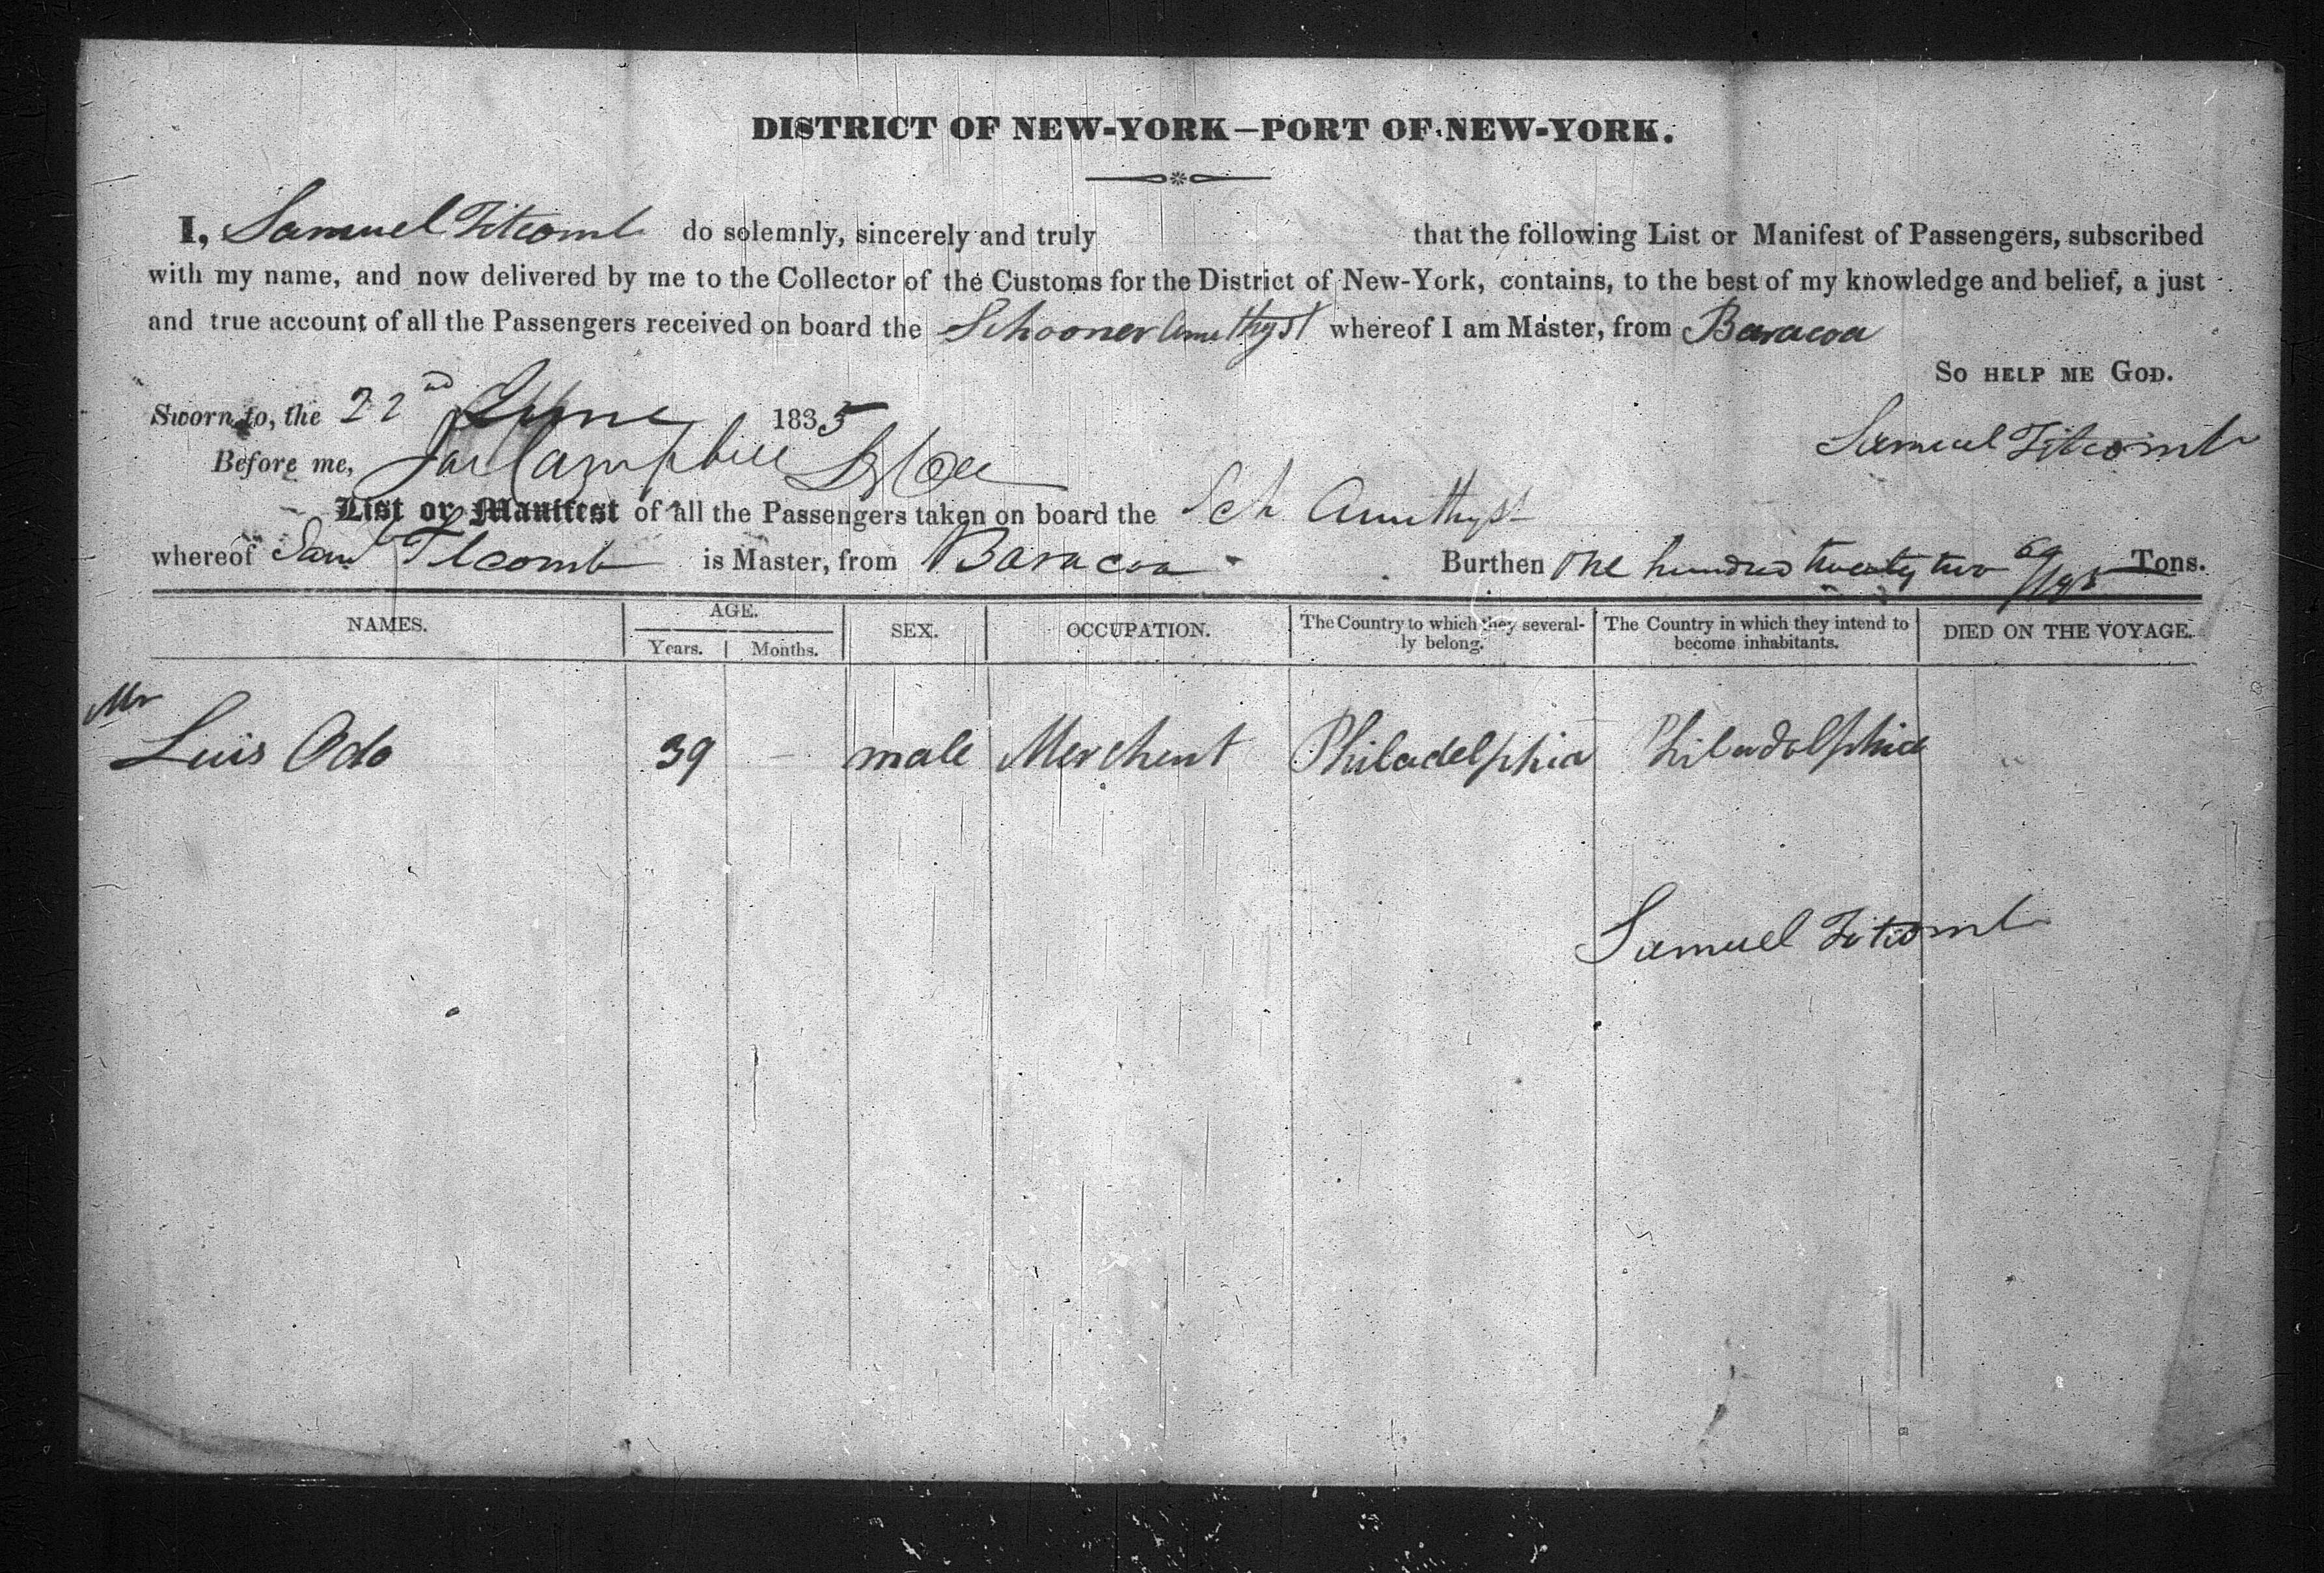 DISTRICT OF NEW-YORK—PORT OF NEW-YORK.
I, Samuel Titcomb do solemnly, sincerely and truly that the following List or Manifest of Passengers, subscribed
with my name, and now delivered by me to the Collector of the Customs for the District of New-York, contains, to the best of my knowledge and belief, a just
and true account of all the Passengers received on board the Schooner Amethyst whereof I am Master, from Baracoa
So HELP ME GOD.
Sworn to, the 22nd June 1835
Samuel Titcomb
Before me, Campbell
List or Manifest of all the Passengers taken on board the Sch Amethyst
whereof Saml Titcomb is Master, from Baracoa Burthen One hundred twenty two 69/95 Tons.
NAMES. AGE. Years. Months. SEX. OCCUPATION. The Country to which they severally belong. The Country in which they intend to become inhabitants. DIED ON THE VOYAGE.
Mr
Luis Odo 39 — male Merchent Philadelphia Philadelphia
Samuel Titcomb